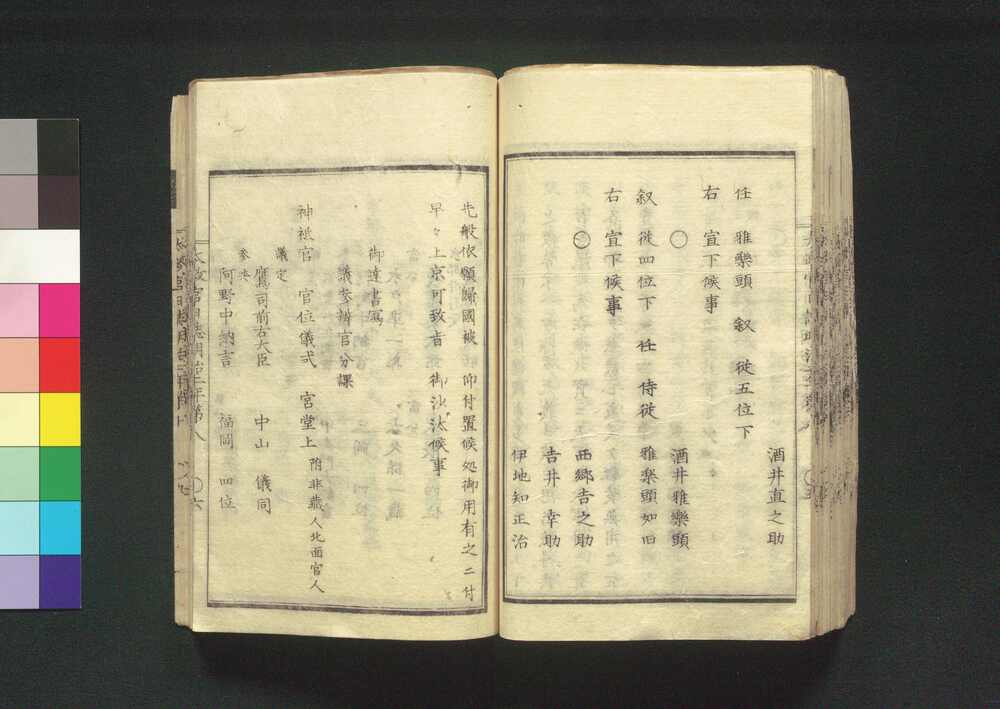 酒井直之助
任　雅樂頭　叙　從五位下
右　宣下候事
〇
酒井雅樂頭
叙　從四位下　任　侍從　雅樂頭如旧
右　宣下候事
〇
西郷吉之助
吉井幸助
伊地知正治
先般依願歸國被　仰付置候処御用有之ニ付
早々上京可致旨　御沙汰候事
御達書寫
議参辨官分課
神祇官　官位儀式　宮堂上　附非藏人北面官人
議定
鷹司前右大臣　中山　儀同
参与
阿野中納言　福岡　四位
太政官日誌明治二年第八　〇六